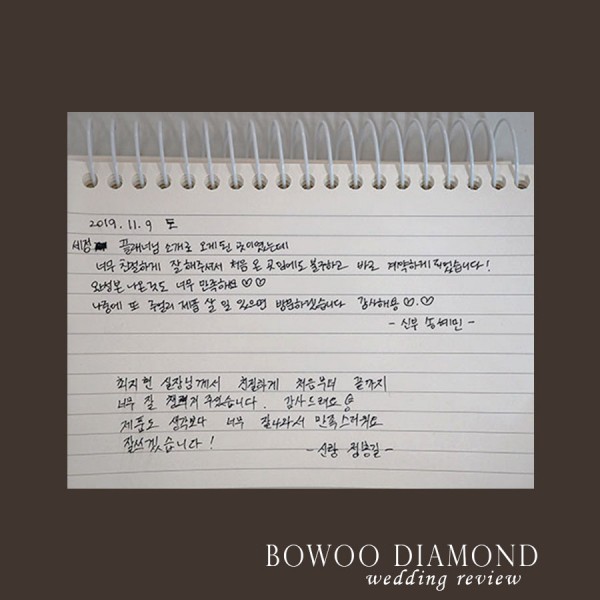 2019. 11. 9 토
세정 플래너님 소개로 오게 된 곳이었는데
너무 친절하게 잘 해주셔서 처음 온 곳임에도 불구하고 바로 계약하게 되었습니다!
완성본 나온것도 너무 만족해요 ♡♡
나중에 또 주얼리 제품 살 일 있으면 방문하겠습니다 감사해용 ♡.♡
- 신부 송혜민 -
최지현 실장님께서 친절하게 처음부터 끝까지
너무 잘 챙겨 주셨습니다. 감사드려요
제품도 생각보다 너무 잘나와서 만족스러워요
잘쓰겠습니다!
- 신랑 정봉길 -
BOWOO DIAMOND
wedding review